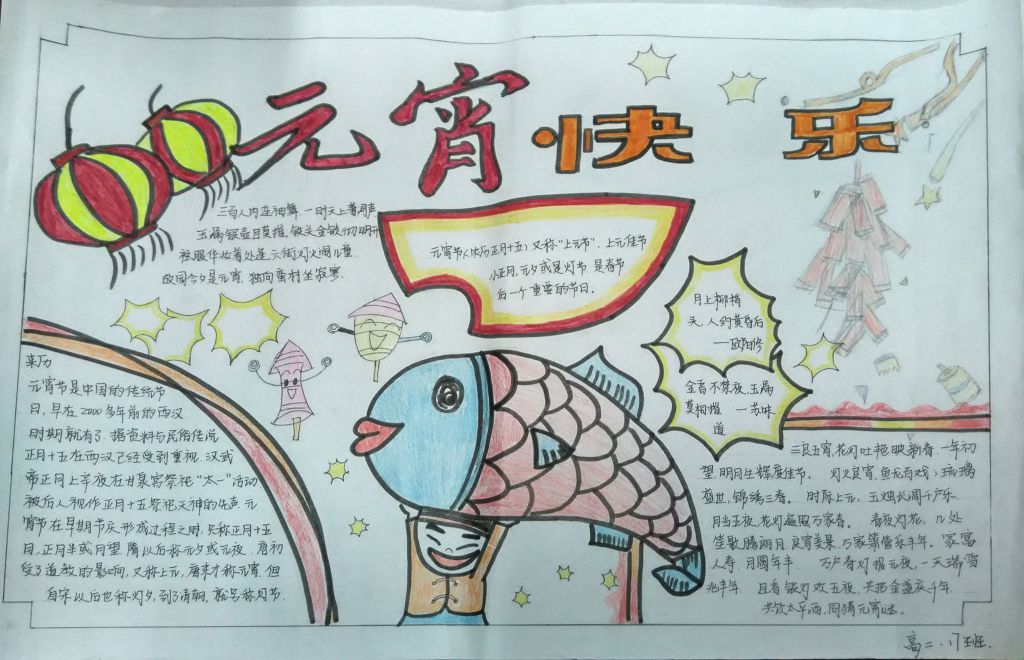 元宵快乐
三百人内连袖舞,一时天上著词声
玉漏银壶且莫催,铁关金锁彻明开
袨服华妆着处逢,六街灯火闹儿童.
故园今夕是元宵,独向蛮村坐寂寥.
元宵节(农历正月十五)又称"上元节",上元佳节
小正月,元夕或是灯节,是春节
后一个重要的节日。
月上柳梢
头,人约黄昏后
——欧阳修
金吾不禁夜,玉漏
莫相催 —苏味
道
来历
元宵节是中国的传统节
日,早在2000多年前的西汉
时期就有了.据资料与民俗传说
正月十五在西汉已经受到重视,汉武
帝正月上辛夜在甘泉宫祭祀"太一"活动
被后人视作正月十五祭祀天神的先声.元
宵节在早期节庆形成过程之时,只称正月十五
日,正月半或月望,隋以后称元夕或元夜.唐初
受了道教的影响,又称上元,唐末才称元宵.但
自宋以后也称灯夕,到了清朝,就另称灯节.
三五良宵,花灯吐艳映新春.一年初
望,明月生辉度佳节。 灯火良宵,鱼龙百戏;琉璃
盛世,锦绣三春。 时际上元,玉烛长调千户乐.
月当五夜,花灯遍照万家春。 春夜灯花,几处
笙歌腾朗月,良宵美景,万家箫管乐丰年。家家
人寿,月圆年丰 万户春灯报元夜,一天瑞雪
兆丰年. 且看银灯欢五夜,共把金盏庆千年.
共饮太平酒,同猜元宵谜.
高二、17班.